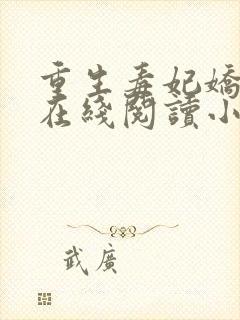 重生毒妃嬌
在綫閱讀小
武廣